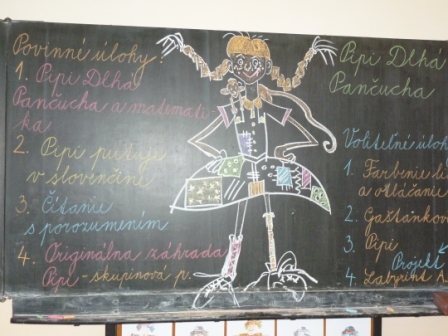 Povinné úlohy:
1. Pipi Dlhá
Pančucha a matemati-
ka
2. Pipi
v slovenčine
3. Čítanie
s porozumením
4. Originálna záhrada
Pipi - skupinová p.
Pipi Dlhá
Pančucha
Voliteľné úloh
1. Farbenie li
a otláčanie
2. Gaštánkov
3. Pipi
Projekt
4. Labyrint